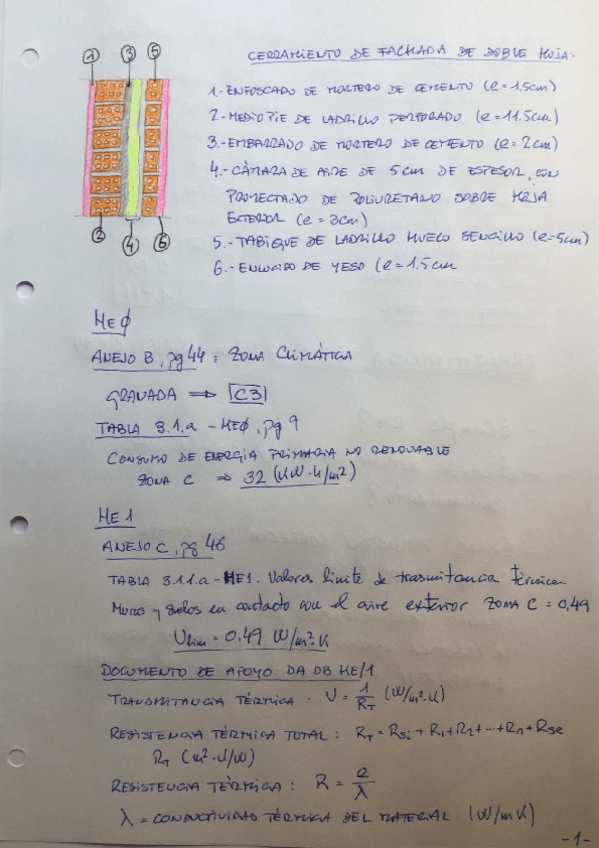 1 3 5
CERRAMIENTO DE FACHADA DE DOBLE HOJA.
1.- ENFOSCADO DE MORTERO DE CEMENTO (e = 1.5cm)
2.- MEDIO PIE DE LADRILLO PERFORADO (e = 11.5cm)
3.- EMBARRADO DE MORTERO DE CEMENTO (e = 2cm)
4.- CÁMARA DE AIRE DE 5 cm DE ESPESOR, CON
PROYECTADO DE POLIURETANO SOBRE HOJA
EXTERIOR (e = 3cm)
5.- TABIQUE DE LADRILLO HUECO SENCILLO (e=5cm)
6.- ENLUCIDO DE YESO (e=1.5cm
2 4 6
HEØ
ANEJO B, pg 44 : ZONA CLIMÁTICA
GRANADA ⇒ C3
TABLA 3.1.a - HEØ, pg 9
CONSUMO DE ENERGÍA PRIMARIA NO RENOVABLE
ZONA C ⇒ 32 (KW·h/m²)
HE1
ANEJO C, pg 46
TABLA 3.1.1.a - HE1. Valores límite de trasmitancia térmica
Muros y suelos en contacto con el aire exterior ZONA C = 0,49
Ulim = 0,49 W/m²·K
DOCUMENTO DE APOYO DA DB HE/1
TRANSMITANCIA TÉRMICA : U = 1/RT (W/m²·K)
RESISTENCIA TÉRMICA TOTAL : RT = Rsi + R1 + R2 + ... + Rn + Rse
RT (m²·K/W)
RESISTENCIA TÉRMICA : R = e/λ
λ = CONDUCTIVIDAD TÉRMICA DEL MATERIAL (W/mK)
-1-